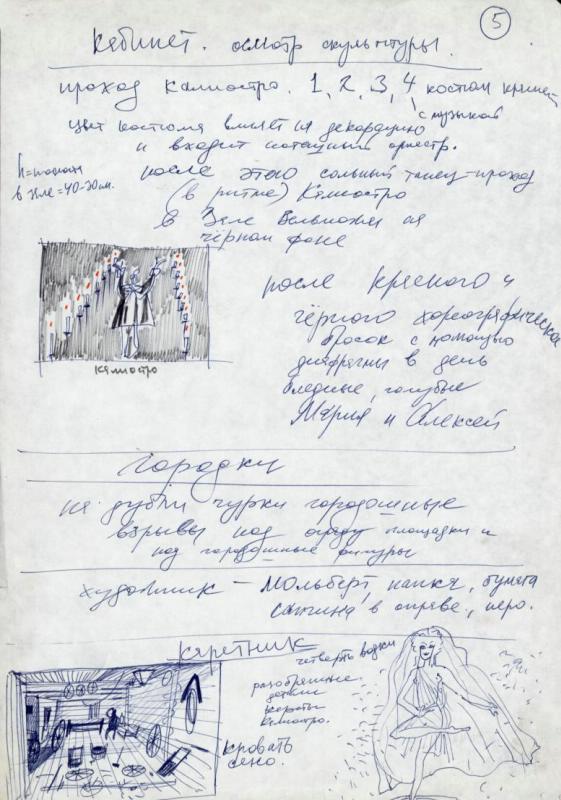 5
Кабинет. осмотр скульптуры.
проход Калиостро. 1, 2, 3, 4 костюм
с музыкой
цвет костюма влияет на декорацию
и входит оркестр.
h=
в зале = 40-30 см.
после этого сольный танец-проход
(в ритме) Калиостро
в Зале Вельможи на
чёрном фоне
Калиостро
после красного и
чёрного хореографическое
бросок с помощью
диафрагмы в день
бледные, голубые
Мария и Алексей
Городки
на дубли чурки городошные
взрывы под площадки и
под городошные фигуры
художник – мольберт, папка, бумага
сангина в оправе, перо.
каретник
четверть водки
разобранные
детали
кареты
Калиостро.
кровать
сено.